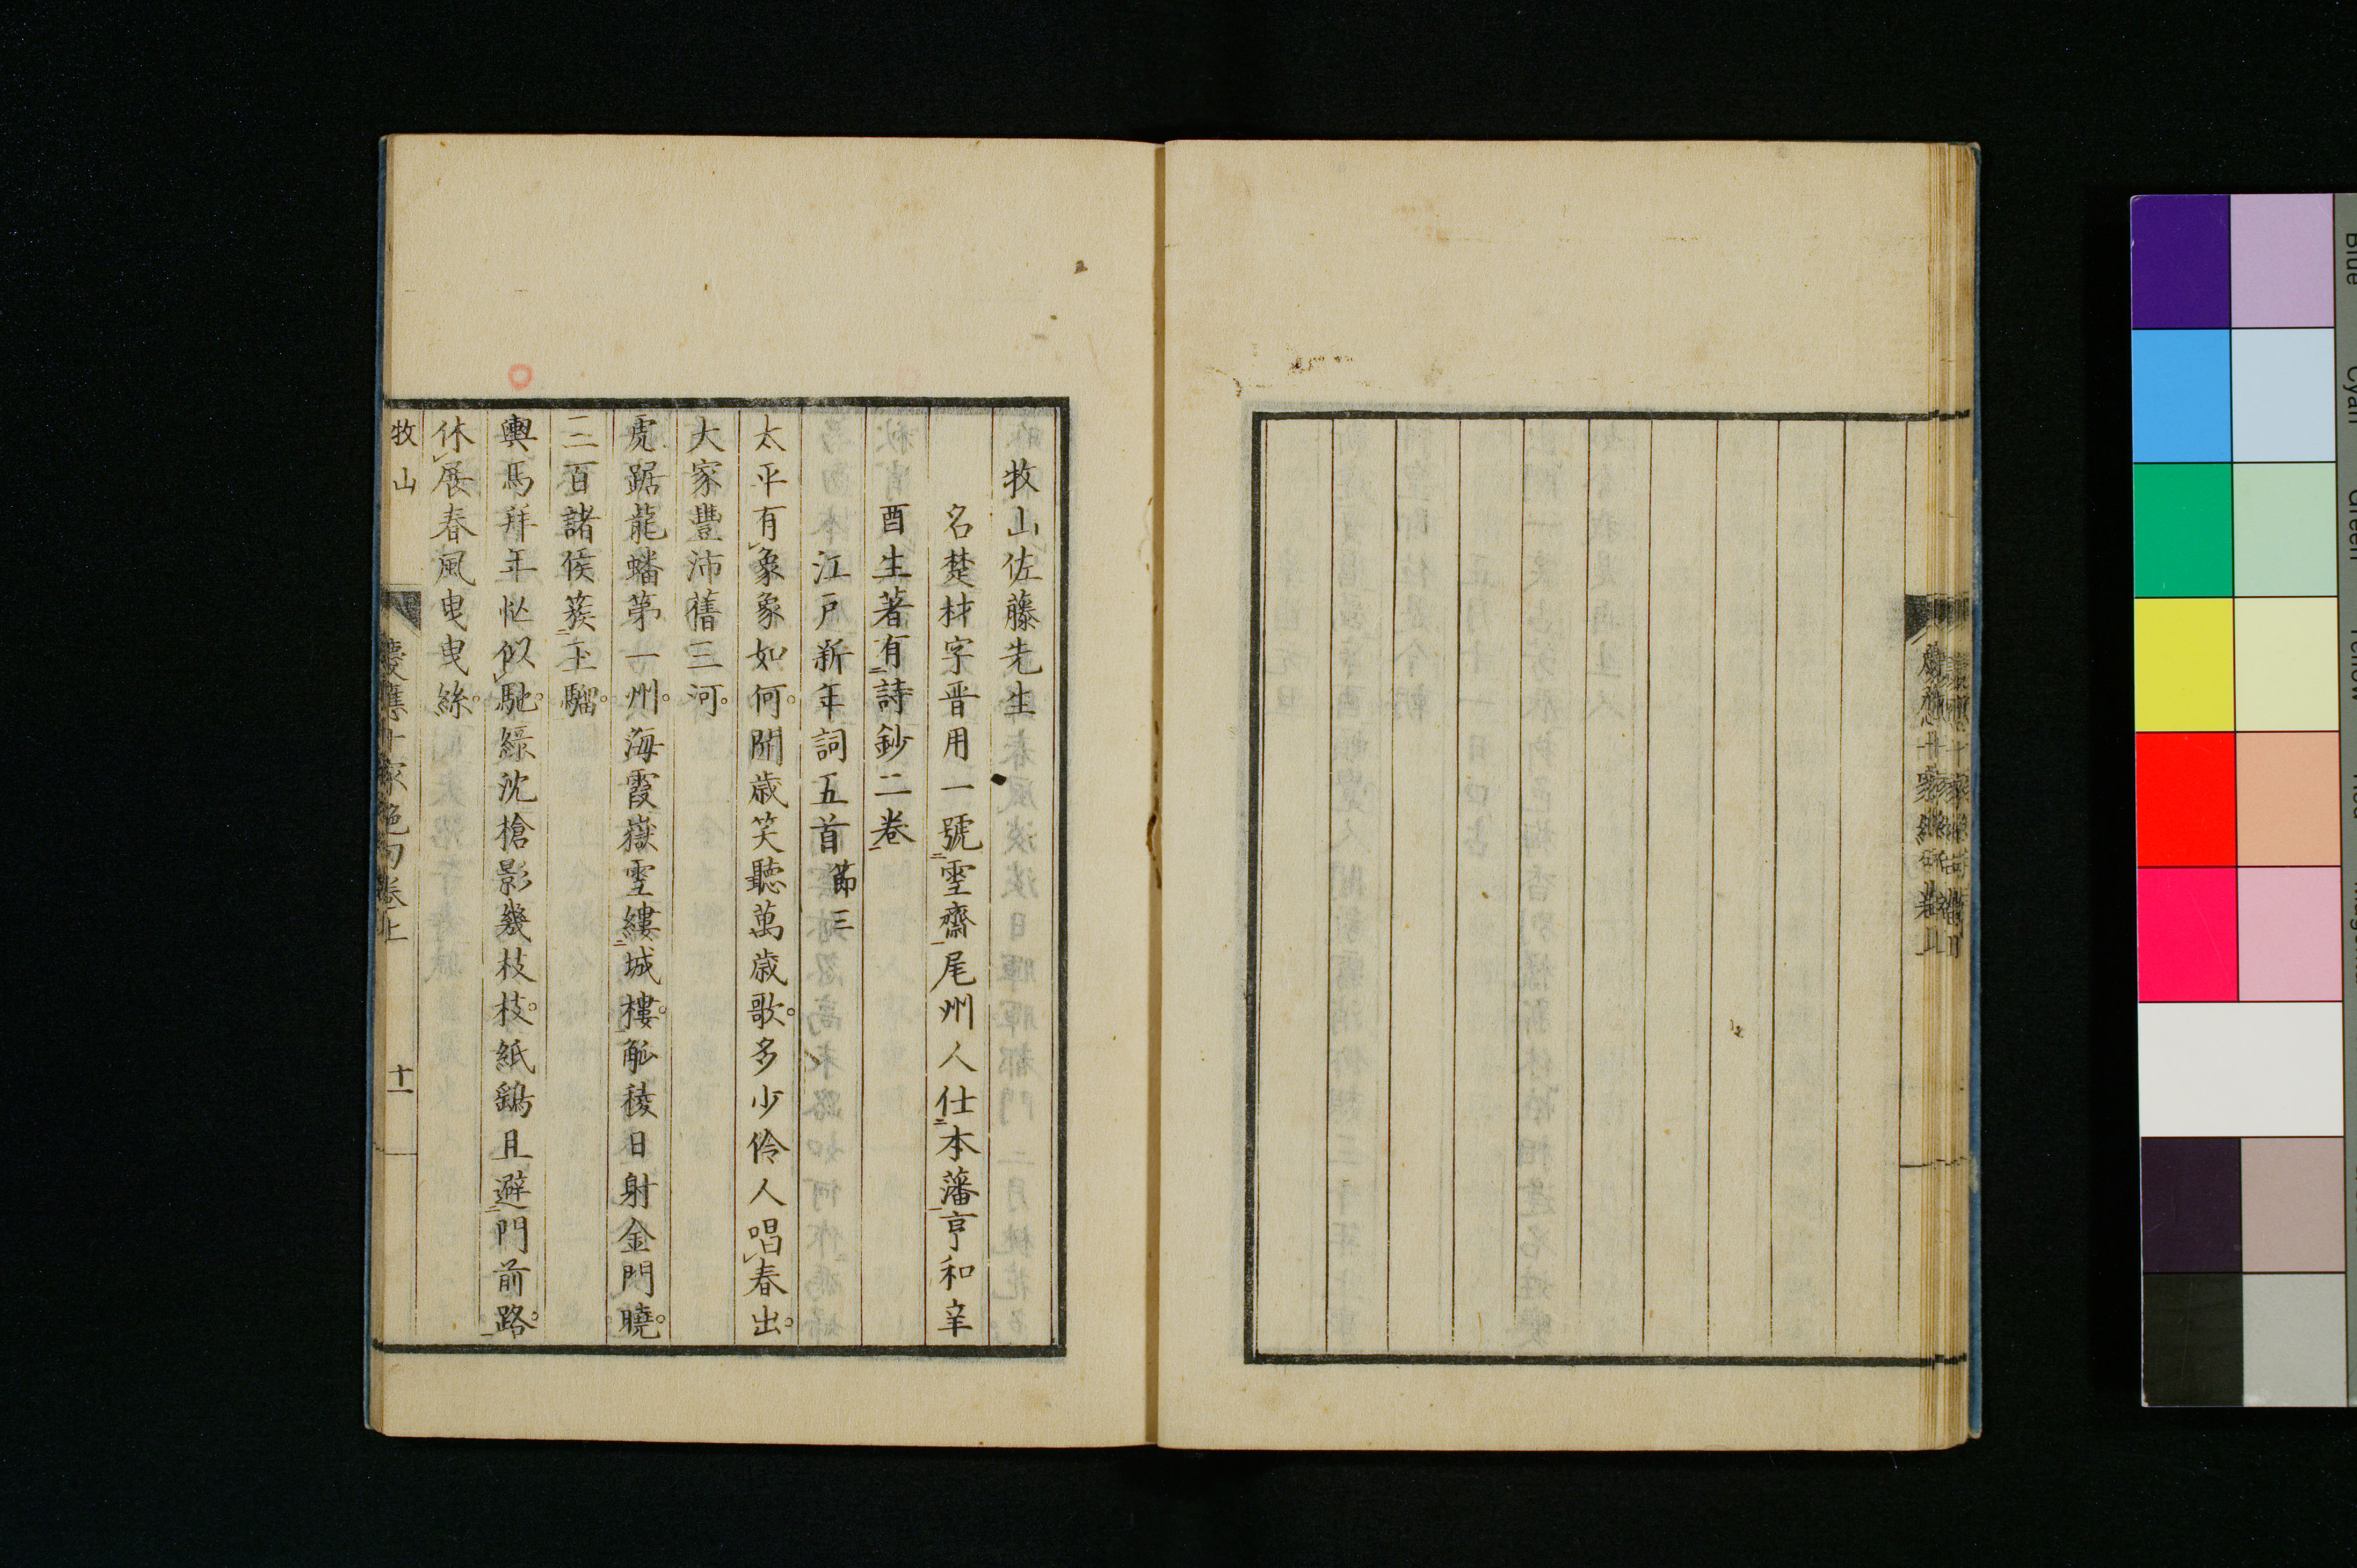 牧山佐藤先生
名楚材字晋用一號雪齋尾州人仕本藩亨和辛
酉生著有詩鈔二卷
江戸新年詞五首節三
太平有象象如何開歳笑聽萬歳歌多少伶人唱春出
大家豐沛舊三河
虎踞龍蟠第一州海霞嶽雪縷城樓觚稜日射金門曉
二百諸侯蔟玉騮
輿馬拜年忙似馳綠沈槍影幾枝枝紙鷂且避門前路
休展春風曳曳絲
牧山
慶應十家絶句卷上
十一